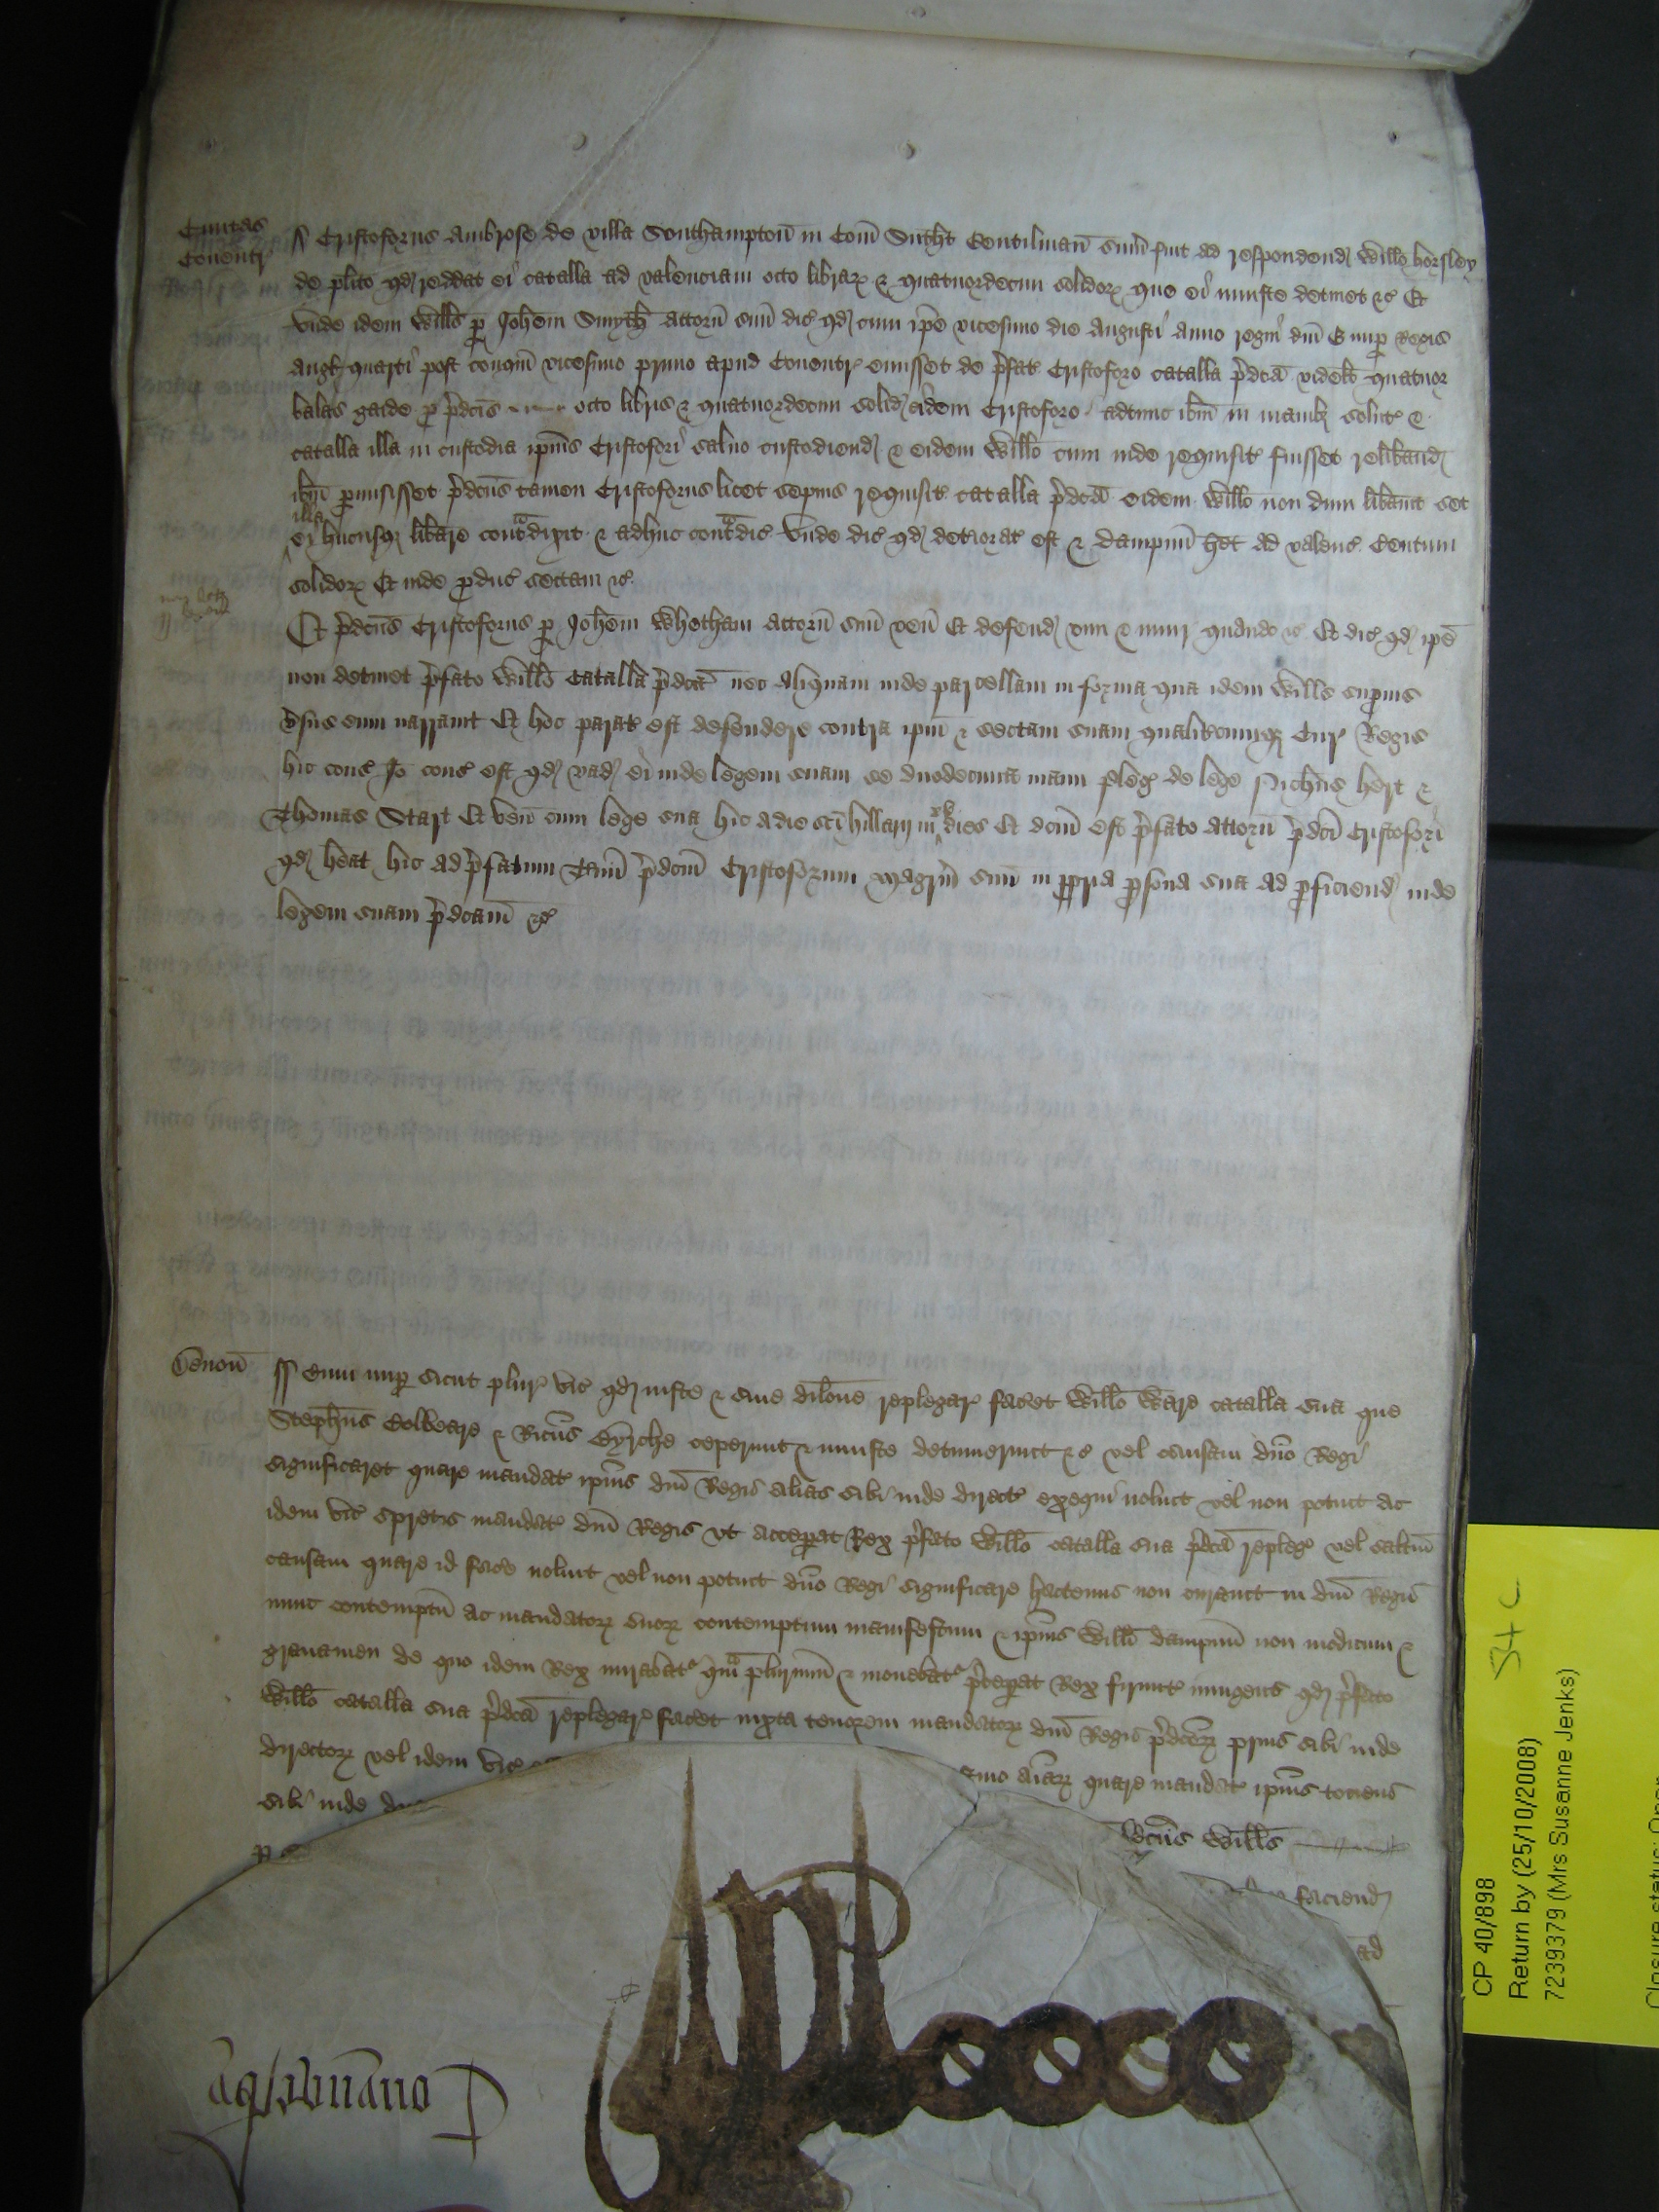 Ciuitas
Couentr̛
Cristoforus Ambrose de villa Southampton̄ in Com̄ Sutht̄ Gentilman̄ sum̄ fuit ad respondend̛ Willo̅ horsley
de pl̄ito qd̛ reddat ei catalla ad valenciam octo librar̛ & quatuordecim solidor̛ que ei iniuste detinet &c̛ Et
vnde idem Will̄s p̱ Joh̄em Smyth̄ attorn̄ suū dic̛ qd̛ cum ip̄e vicesimo die Augusti anno regni dn̄i E nup̱ Regis
Angl̛ quarti post conqm̄ vicesimo primo apud Couentr̛ emisset de p̄fat̛ Cristoforo catalla p̄dc̄a videlt̛ quatuor
balas gaide p̱ p̄dc̄is octo libris & quatuordecim solid̛ eidem Cristoforo adtunc ibm̄ in manib̛ solut̛ &
catalla illa in custodia ip̄ius Cristofori saluo custodiend̛ & eidem Willo̅ cum inde requisit̛ fuisset relib̄and̛
ibm̄ p̱misisset p̄dc̄us tamen Cristoforus licet sepius requisit̛ catalla p̄dc̄a eidem Willo̅ non dum lib̄auit set
illa
ei hucusq̛ lib̄are contᵃdixit & adhuc contᵃdic̛ vnde dic̛ qd̛ deteriorat̛ est & dampnū h̄et ad valenc̛ Centum
solidor̛ Et inde p̱duc̛ sectam &c̛
Et p̄dc̄us Cristoforus p̱ Joh̄em Whetham attorn̄ suū ven̄ Et defend̛ vim & iniur̛ quando &c̛ Et dic̛ qd̛ ip̄e
non detinet p̄fato Willo̅ Catalla p̄dc̄a nec aliquam inde parcellam in forma qua idem Will̄s sup̱ius
v̄sus eum narrauit Et hoc parat̛ est defendere contra ip̄m & sectam suam qualit̛cumq̛ Cur̛ Regis
hic cons̛ Io̅ cons̛ est qd̛ vad̛ ei inde legem suam se duodecima manu pleg̛ de lege Nich̄us hert &
Thomas Start Et ven̄ cum lege sua hic a die sc̄i hillarij in xv dies Et dc̄m est p̄fato attorn̄ p̄dc̄i Cristofori
qd̛ h̄eat hic ad p̄fatum t̄minū p̄dc̄m Cristoforum magrm̄ suū in p̱pria p̱sona sua ad p̱ficiend̛ inde
legem suam p̄dc̄am &c̛
Deuon̄
Cum nup̱ sicut plur̛ vic̛ qd̛ iuste & sine dilōne replegiar̛ facet Willo̅ Ware catalla sua que
Steph̄us Colbeare & Ric̄us Byrche ceperunt & iniuste detinuerunt &c̛ vel causam dn̄o Regi
significaret quare mandat̛ ip̄ius dn̄i Regis alias sibi inde direct̛ exequi noluit vel non potuit ac
idem vic̛ spretis mandat̛ dn̄i Regis vt accep̱at Rex p̄fato Willo̅ catalla sua p̄dc̄a repleg̛ vel saltim̄
causam quare id face noluit vel non potuit dn̄o Regi significare hactenus non curauit in dn̄i Regis
nunc contemptū ac mandator̛ suor̛ contemptum manifestum & ip̄ius Willi̅ dampnū non modicum &
grauamen de quo idem Rex mirabat̛ qᵃm plurimū & mouebat̛ p̄cep̱at Rex firmit̛ iniungens qd̛ p̄fato
Willo̅ catalla sua p̄dc̄a replegiar̛ facet iuxta tenorem mandator̛ dn̄i Regis p̄dc̄or̛ prius sibi inde
director̛ vel idem vic̛ quare mandat̛ ip̄ius tociens
sibi inde dc̄us Will̄s
faciend̛
ad
CP 40/898
Return by (25/10/2008)
7239379 (Mrs Susanne Jenks)